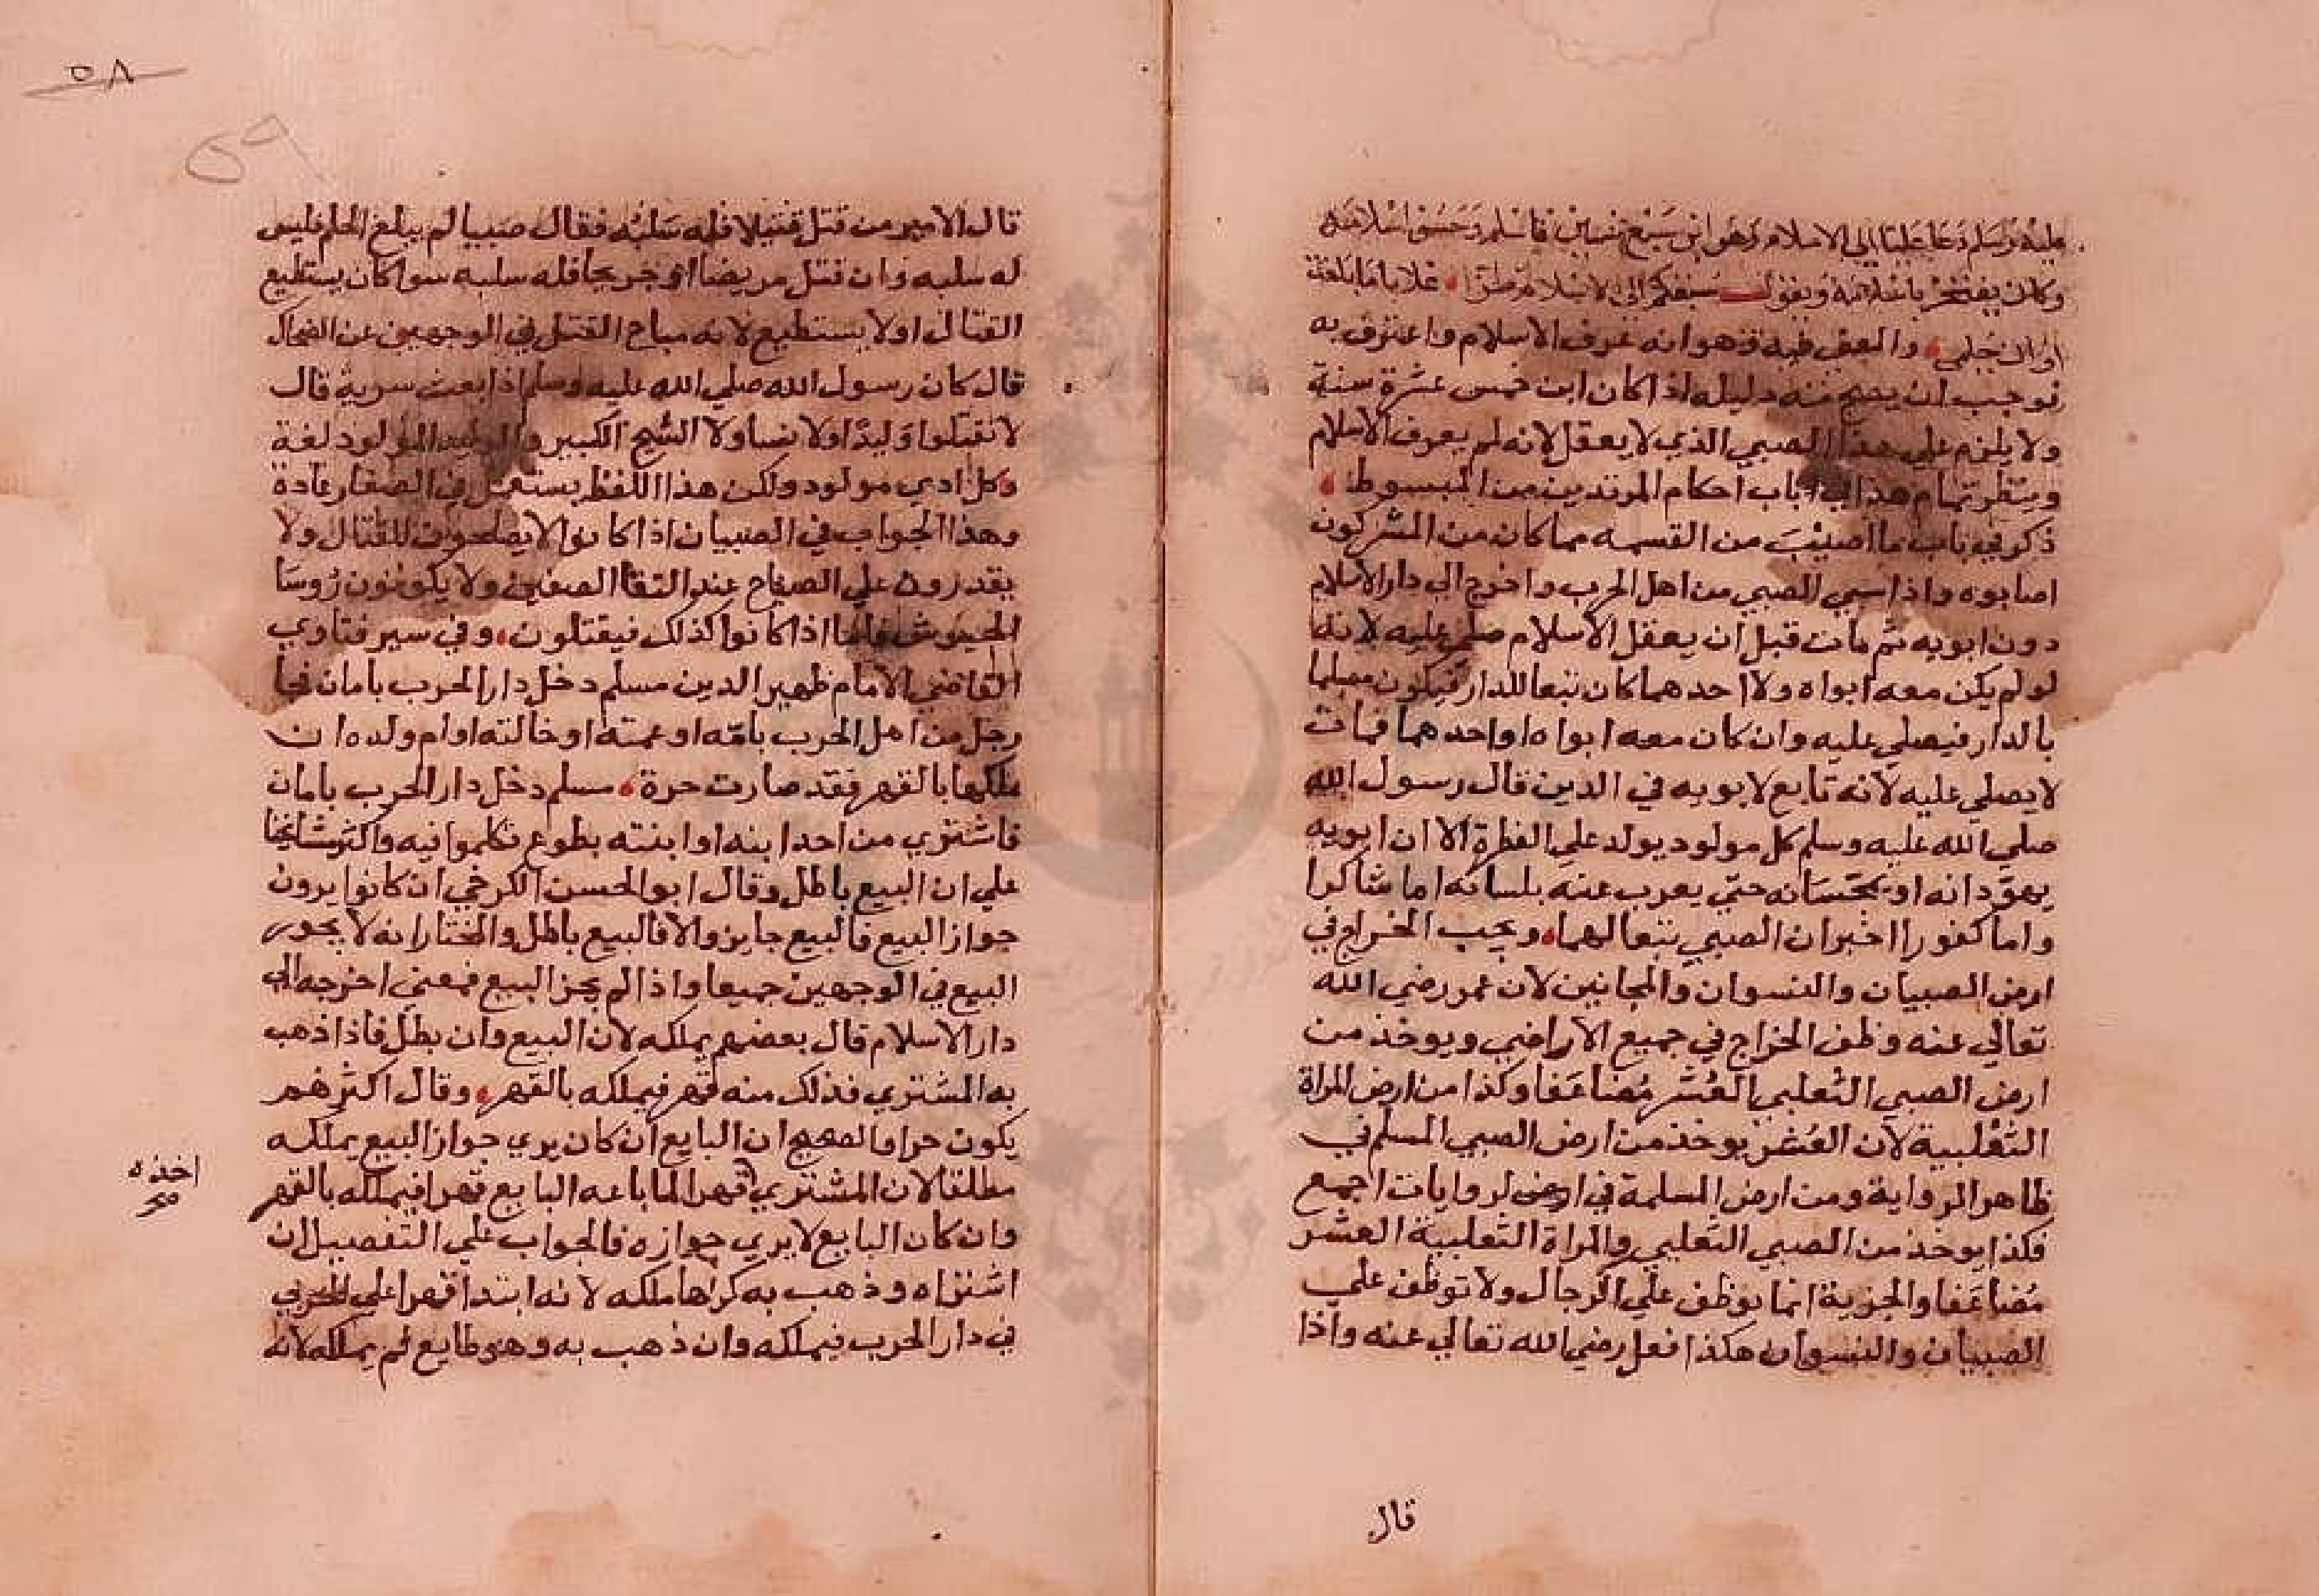 عليه وسلم دعا عليا الي الاسلام وهو ابن سبع سنين فاسلم وحسن اسلامه
وكان يفتخر باسلامه ويقول سبقتكم الي الاسلام طرا غلاما ما بلغت
اوان حلمي والفقه فيه وهو انه عرف الاسلام واعترف به
فوجب ان يصح منه دليله اذا كان ابن خمس عشرة سنة
ولا يلزم علي هذا الصبي الذي لا يعقل لانه لم يعرف الاسلام
وينظر تمام هذا في باب احكام المرتدين من المبسوط
ذكر في باب ما اصيب من القسمه مما كان من المشركون
اصابوه واذا سبي الصبي من اهل الحرب واخرج الي دار الاسلام
دون ابويه ثم مات قبل ان يعقل الاسلام صلي عليه لانه
لو لم يكن معه ابواه ولا احدهما كان تبعا للدار فيكون مسلما
بالدار فيصلي عليه وان كان معه ابواه او احدهما فمات
لا يصلي عليه لانه تابع لابويه في الدين قال رسول الله
صلي الله عليه وسلم كل مولود يولد علي الفطرة الا ان ابويه
يهودانه او يمجسانه حتي يعرب عنه بلسانه اما شاكرا
واما كفورا اخبر ان الصبي يتبعا لهما ويجب الخراج في
ارض الصبيان والنسوان والمجانين لان عمر رضي الله
تعالي عنه وظف الخراج في جميع الاراضي ويوخذ من
ارض الصبي الثعلبي العشر مضاعفا وكذا من ارض المراة
الثعلبية لان العشر يوخذ من ارض الصبي المسلم في
ظاهر الرواية ومن ارض المسلمة في الروايات اجمع
فكذا يوخذ من الصبي التعلبي والمراة التعلبية العشر
مضاعفا والجزية انما توظف علي الرجال ولا توظف علي
الصبيان والنسوان هكذا فعل رضي الله تعالي عنه واذا
قال
٥٨
59
قال الامير من قتل قتيلا فله سلبه فقال صبيا لم يبلغ الحلم فليس
له سلبه وان قتل مريضا او جريحا فله سلبه سوا كان يستطيع
القتال او لا يستطيع لانه مباح القتل في الوجهين عن الضحاك
قال كان رسول الله صلي الله عليه وسلم اذا بعث سرية قال
لا تقتلوا وليدا ولا نسا ولا الشيخ الكبير والوليد المولود لغة
وكل ادمي مولود ولكن هذا اللفظ يستعمل في الصغار عادة
وهذا الجواب في الصبيان اذا كانوا لا يصلحون للقتال ولا
يقدرون علي الصياح عند التقا الصفين ولا يكونون روسا
الجيوش فاما اذا كانوا كذلك فيقتلون وفي سير فتاوي
القاضي الامام ظهير الدين مسلم دخل دار الحرب بامان فجا
رجل من اهل الحرب بامه او عمته او خالته او ام ولده ان
ملكها بالقهر فقد صارت حرة مسلم دخل دار الحرب بامان
فاشتري من احد ابنه او ابنته بطوع تكلموا فيه واكثر مشايخنا
علي ان البيع باطل وقال ابو الحسن الكرخي ان كانوا يرون
جواز البيع فالبيع جايز والا فالبيع باطل والمختار انه لا يجوز
البيع في الوجهين جميعا واذا لم يجز البيع فمعني اخرجه الي
دار الاسلام قال بعضهم يملكه لان البيع وان بطل فاذا ذهب
به المشتري فذلك منه قهر فيملكه بالقهر وقال اكثرهم
يكون حرا والصحيح ان البايع ان كان يري جواز البيع يملكه
مطلقا لان المشتري قهر لما باعه البايع قهرا فيملكه بالقهر
اخذه
صح
وان كان البايع لا يري جوازه فالجواب علي التفصيل ان
اشتراه وذهب به كرها ملكه لانه ابتدا قهرا علي الحربي
في دار الحرب فيملكه وان ذهب به وهو طايع لم يملكه لانه